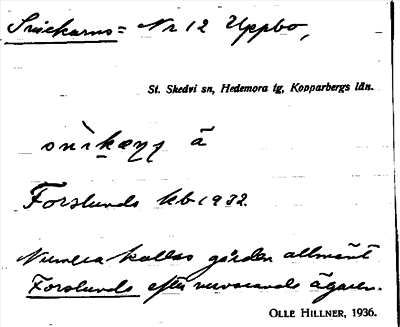 Snickarns = Nr 12 Uppbo,
St. Skedvi sn, Hedemora tg, Kopparbergs län.
å
Forslunds kb 1932.
Numera kallas gården allmänt
Forslunds efter nuvarande ägaren.
OLLE HILLNER, 1936.